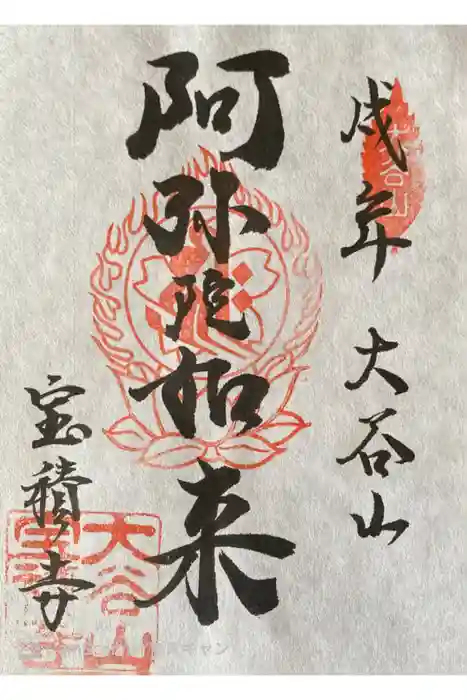 戌年 大谷山
大谷山
阿弥陀如来
宝積寺
大谷山
宝積寺